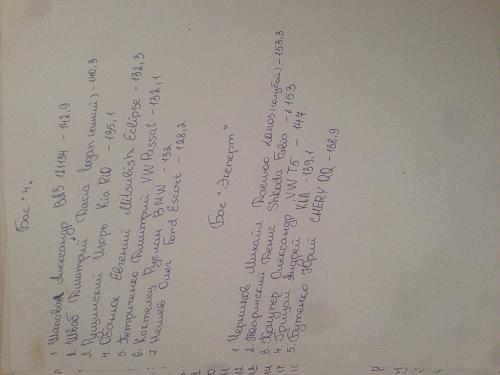 Бас "4"
1 Шаповал Александр ВАЗ 21134 - 142,9
2. Швой Дмитрий Dacia logan (синий) - 140,3
3. Рущинский Игорь Kia Rio - 135,1
4. Евгений Mitsubishi Eclipse - 132,3
5 Петриченко Дмитрий VW Passat - 132,1
6. Коктелец Руслан BMW - 132
7 Нешев Олег Ford Escort - 128,2
Бас "Эксперт"
1 Черников Михайл Daewoo Lanos (голубой) - 153,3
2. Денис Shkoda Fabia - 153
3. Александр VW T5 - 147
4. Грицай Андрей KIA - 139,1
5. Бутенко Юрий CHERY QQ - 138,9